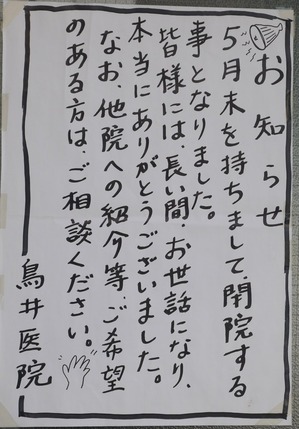 お知らせ
5月末を持ちまして、閉院する
事となりました。
皆様には、長い間・お世話になり、
本当にありがとうございました。
なお、他院への紹介等、ご希望
のある方は、ご相談ください。
鳥井医院